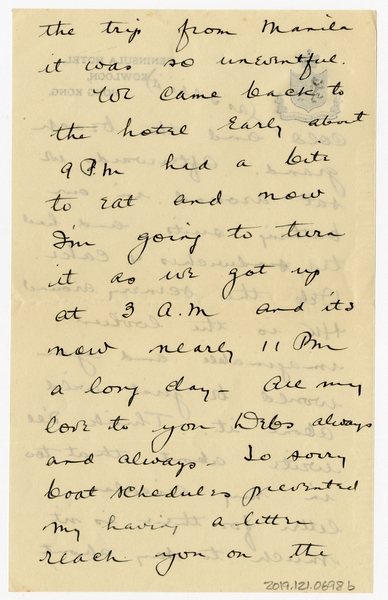 the trip from Manila
it was so uneventful.
We came back to
the hotel early about
9 P.M had a bite
to eat and now
I'm going to turn
it as we got up
at 3 A.M and it's
now nearly 11 PM
a long day - All my
love to you Debs always
and always - So sorry
boat schedules prevented
my having a letter
reach you on the
2019.121.0698b